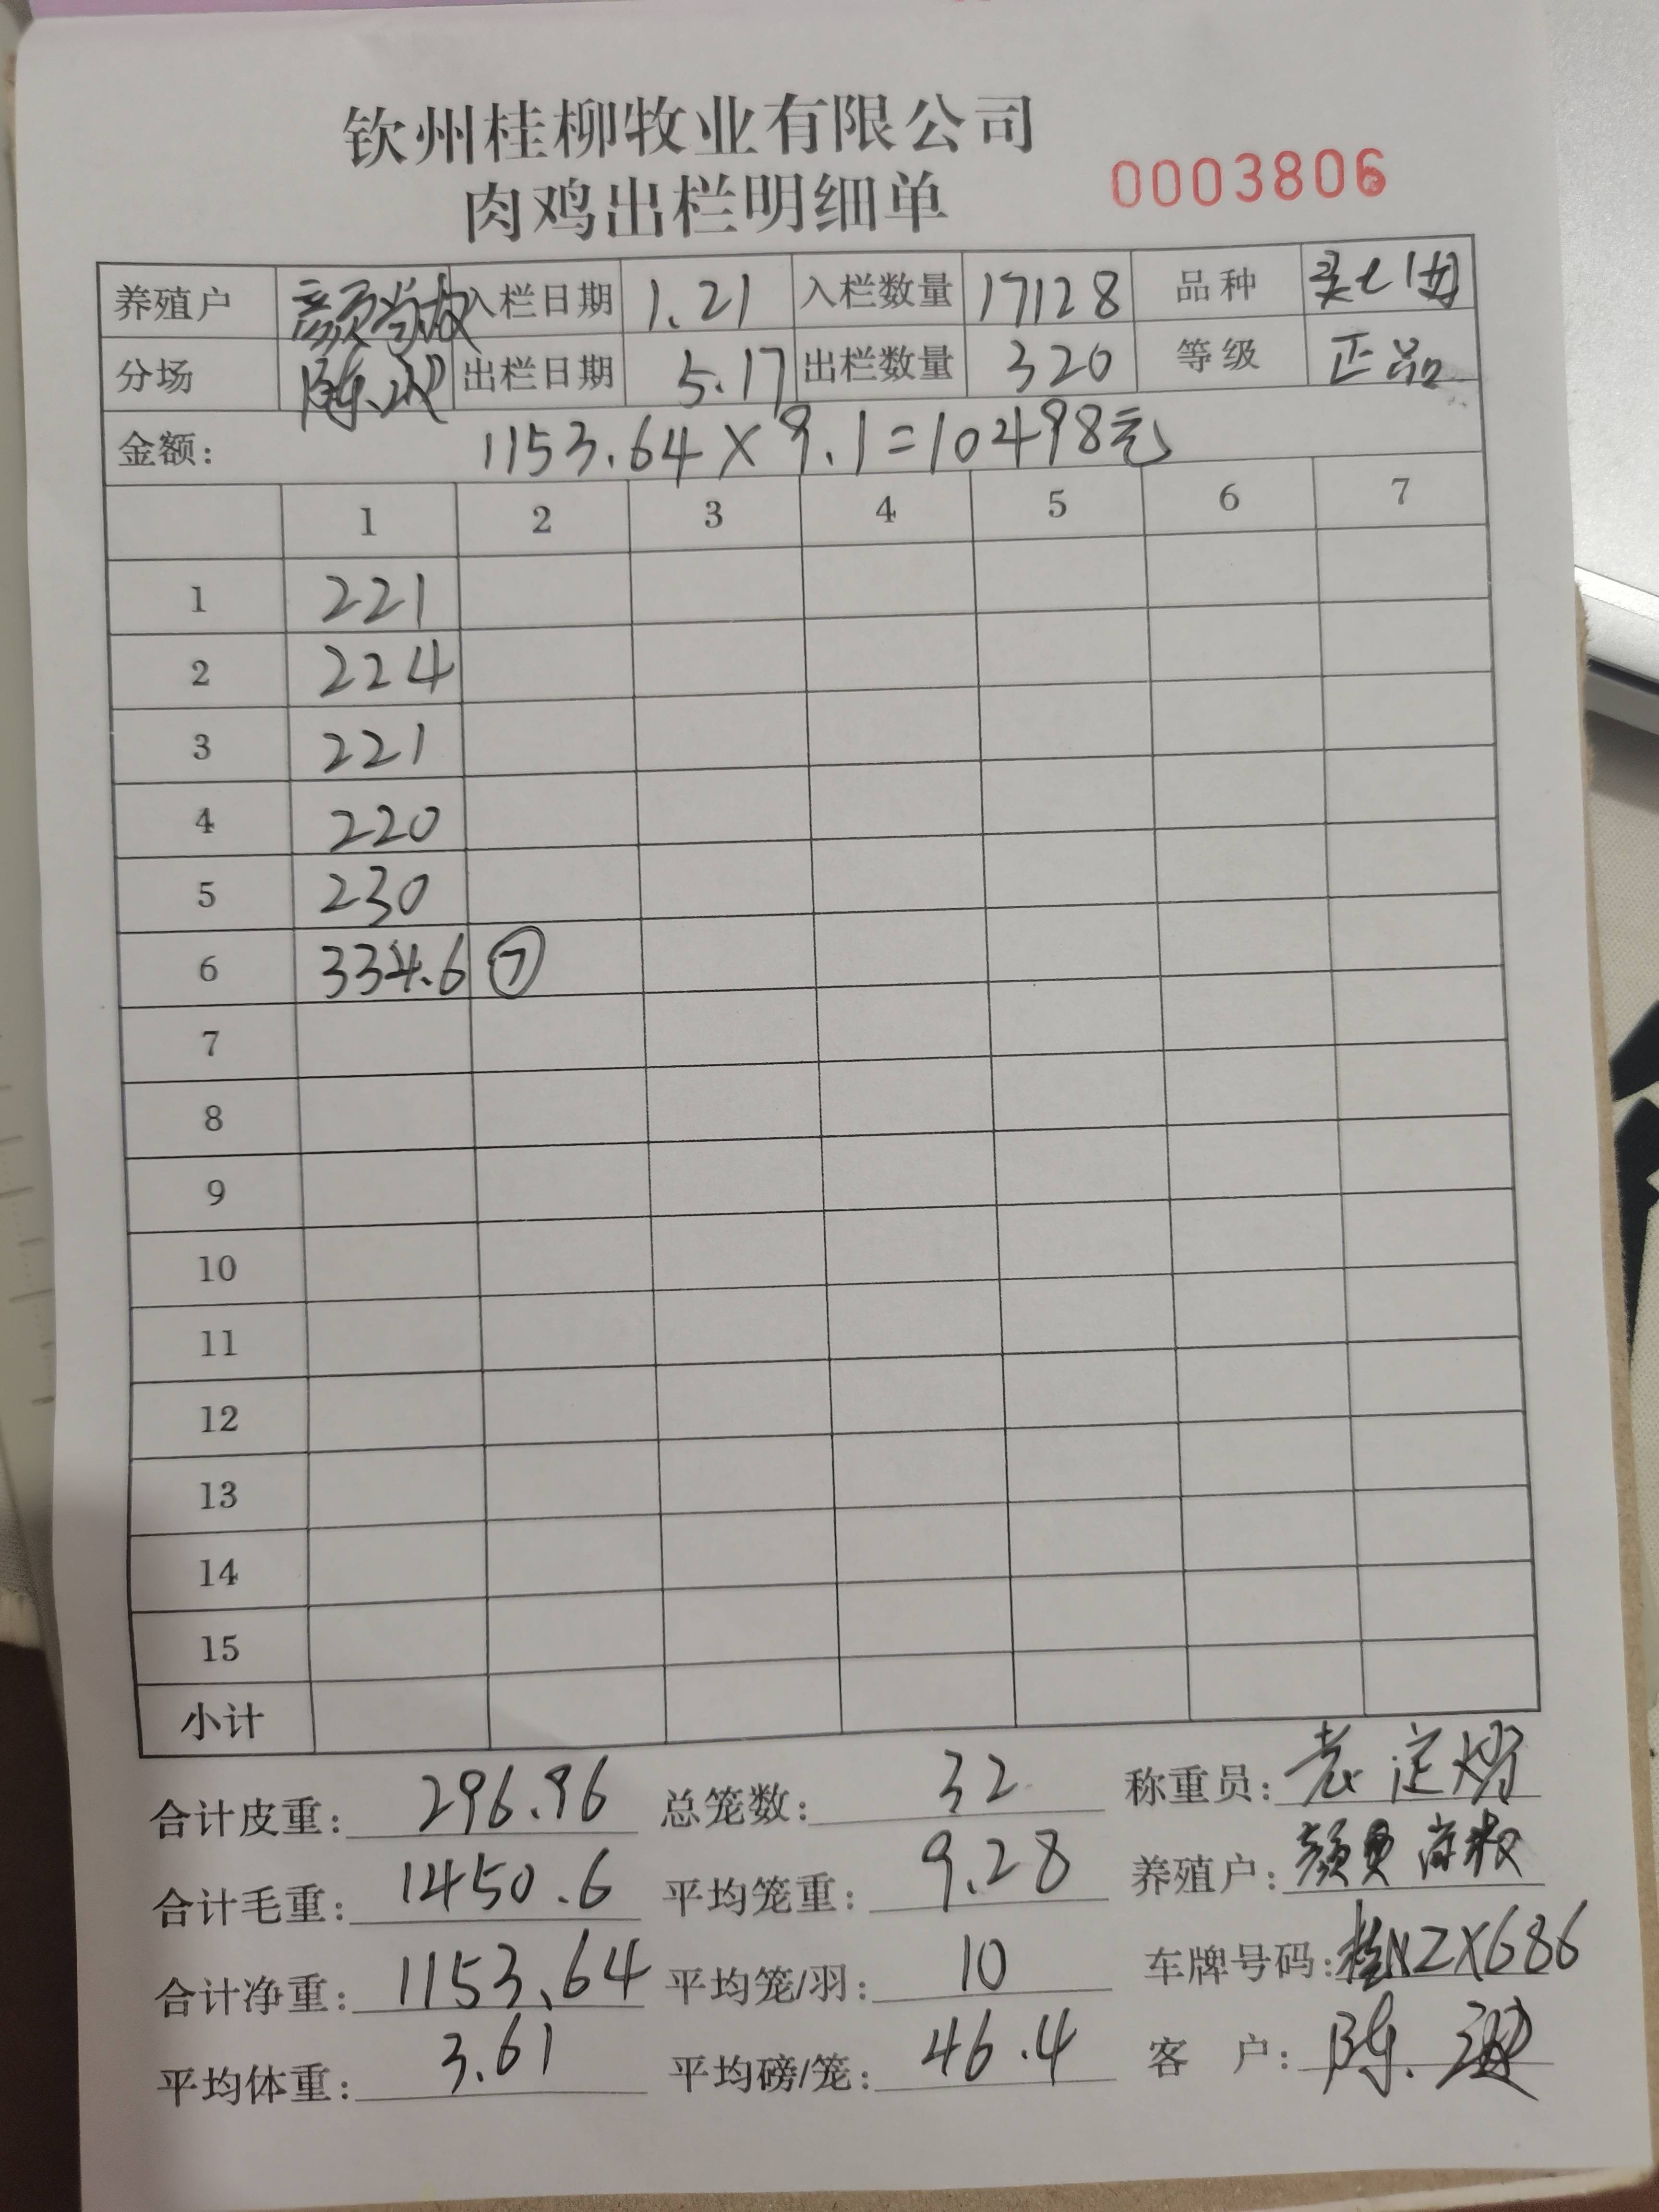 钦州桂柳牧业有限公司
肉鸡出栏明细单 0003806
养殖户 入栏日期 1.21 入栏数量 17128 品种
分场 陈 出栏日期 5.17 出栏数量 320 等级 正品
金额: 1153.64×9.1=10498元
1 2 3 4 5 6 7
1 221
2 224
3 221
4 220
5 230
6 334.6 ⑦
7
8
9
10
11
12
13
14
15
小计
合计皮重: 296.96 总笼数: 32 称重员:
合计毛重: 1450.6 平均笼重: 9.28 养殖户: 颜
合计净重: 1153.64 平均笼/羽: 10 车牌号码: 桂NZX686
平均体重: 3.61 平均磅/笼: 46.4 客户: 陈